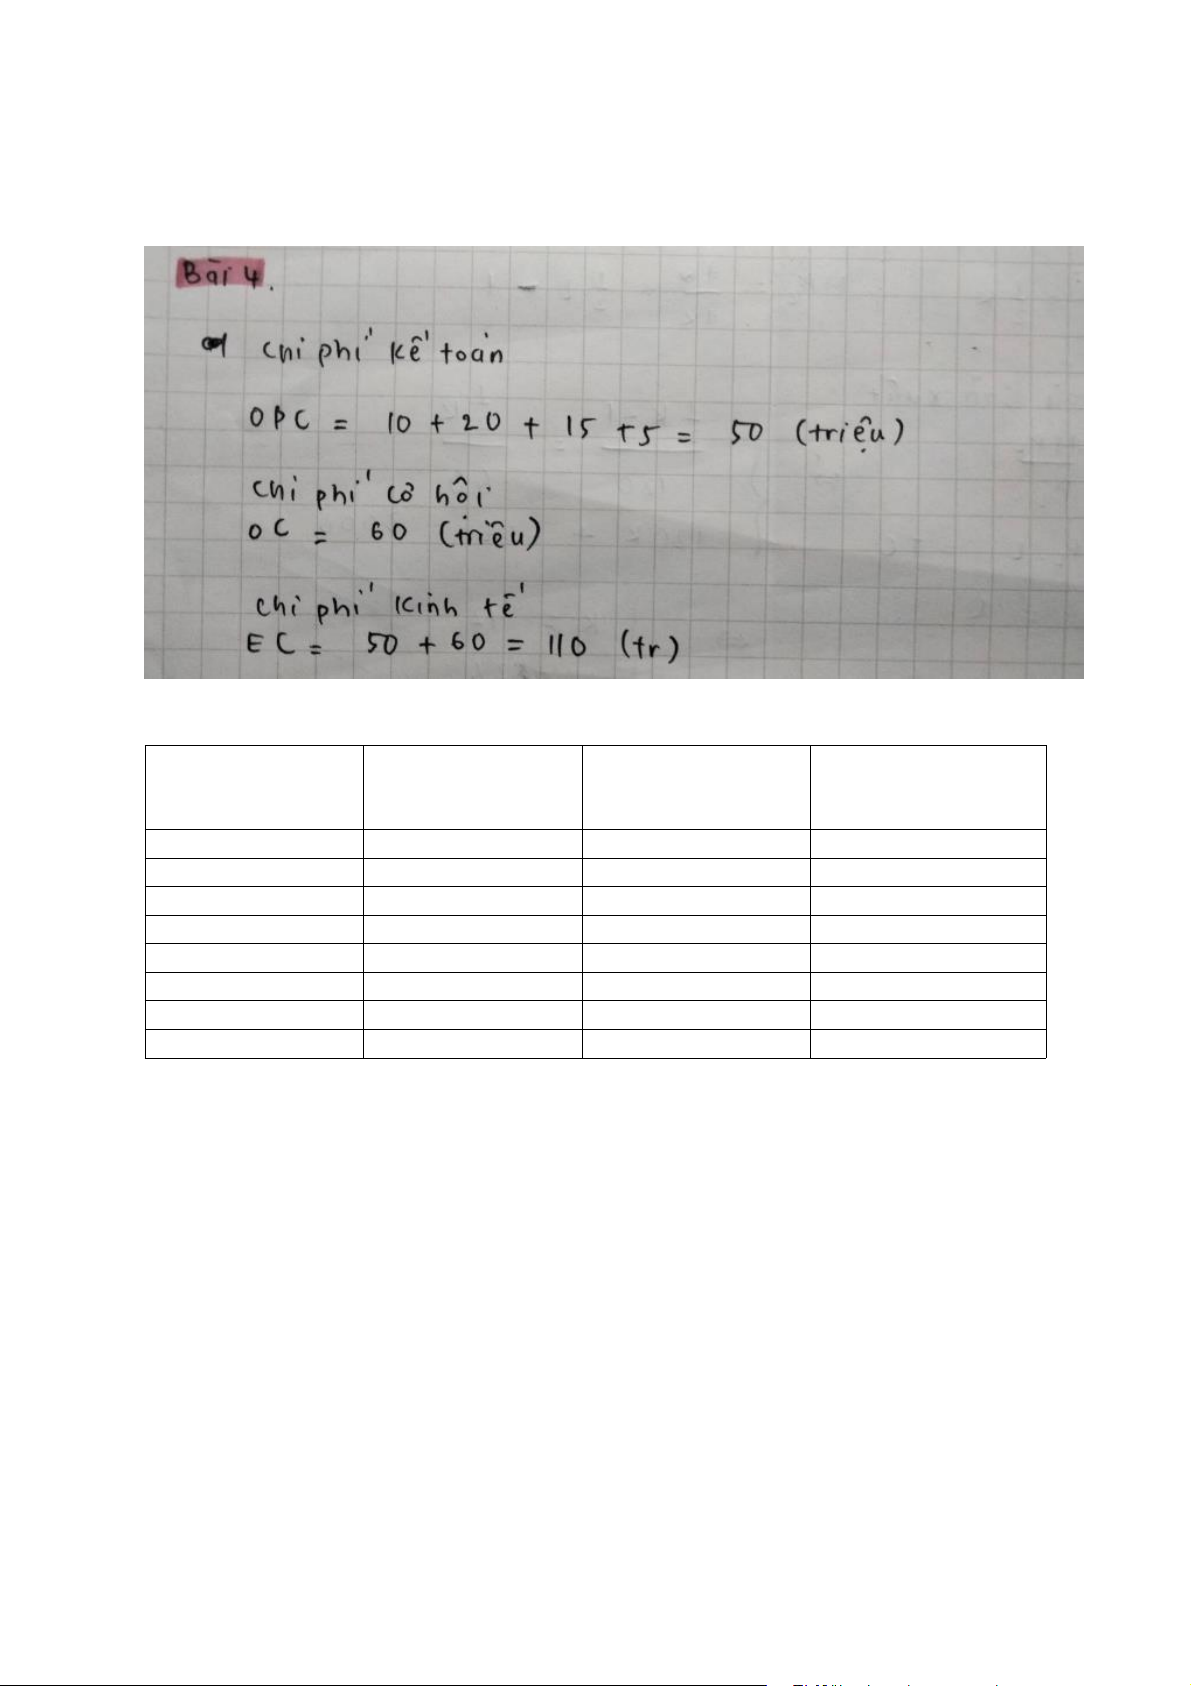 Bài 4.
chi phí kế toán
OPC = 10 + 20 + 15 + 5 = 50 (triệu)
chi phí cơ hội
OC = 60 (triệu)
chi phí kinh tế
EC = 50 + 60 = 110 (tr)